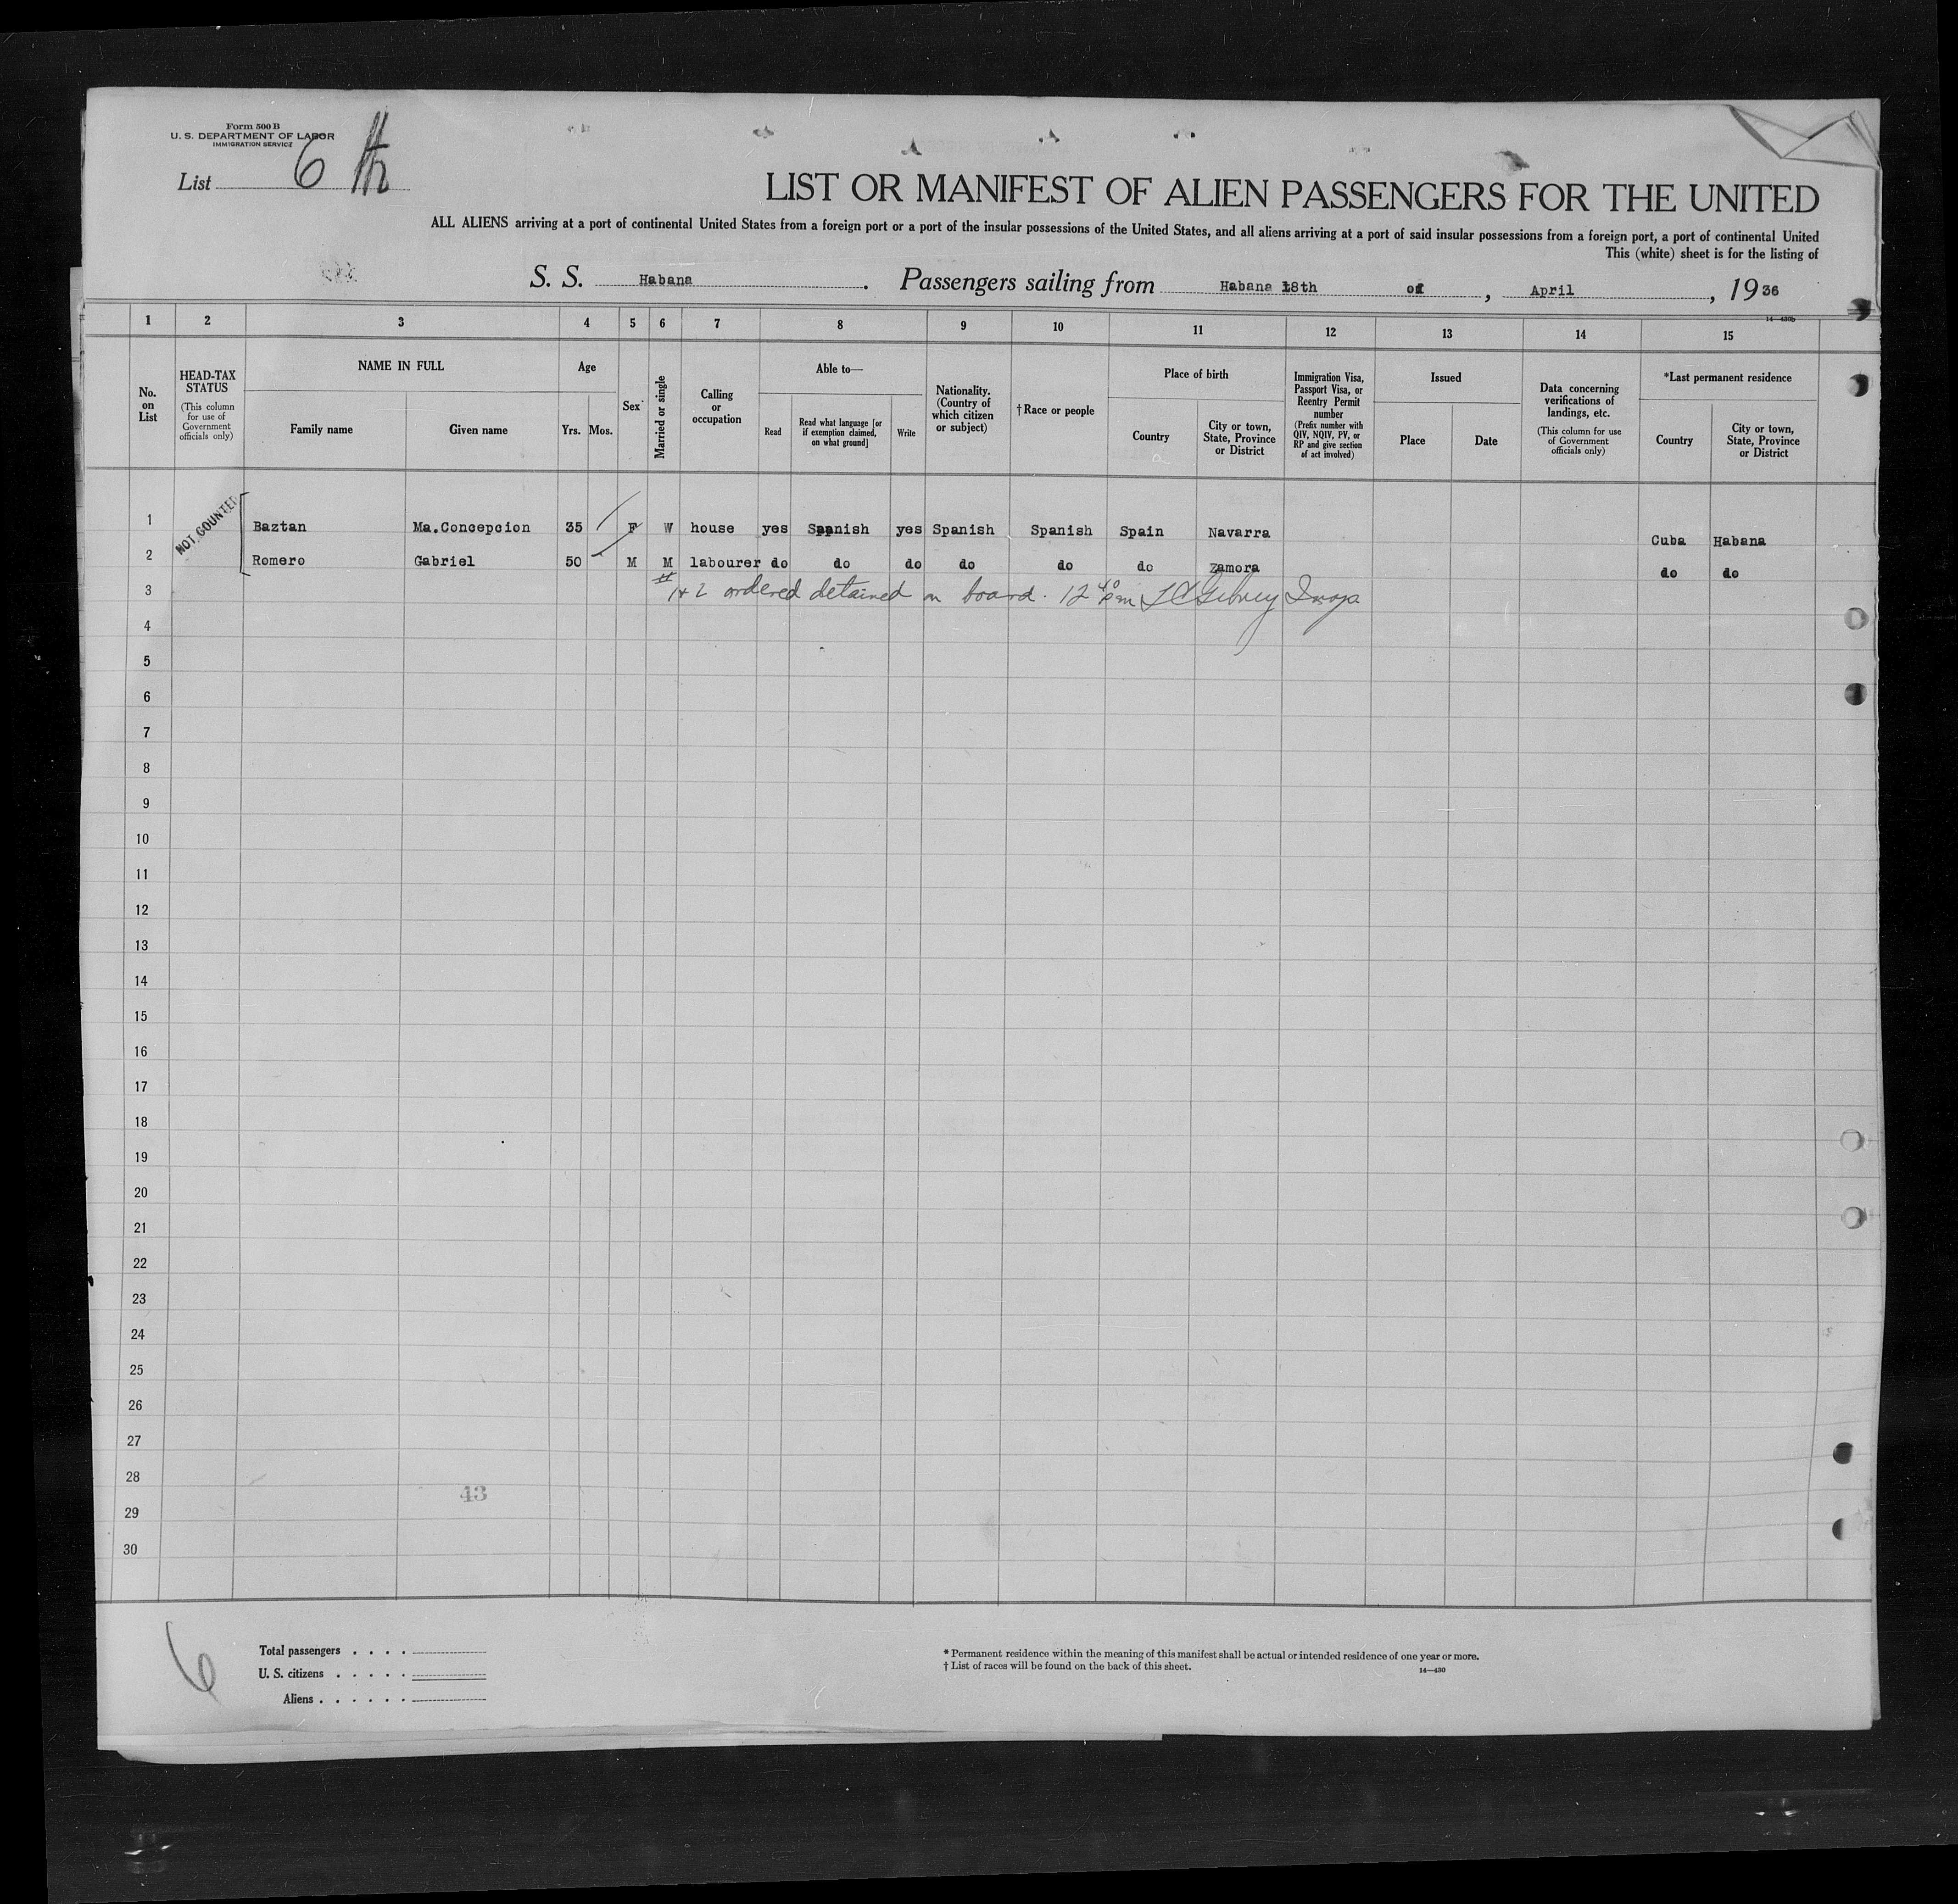 Form 500 B
U. S. DEPARTMENT OF LABOR
IMMIGRATION SERVICE
List 6
LIST OR MANIFEST OF ALIEN PASSENGERS FOR THE UNITED
ALL ALIENS arriving at a port of continental United States from a foreign port or a port of the insular possessions of the United States, and all aliens arriving at a port of said insular possessions from a foreign port, a port of continental United
This (white) sheet is for the listing of
S. S. Habana. Passengers sailing from Habana 18th of, April, 1936
14—430b
1 2 3 4 5 6 7 8 9 10 11 12 13 14 15
No. on List
HEAD-TAX STATUS
(This column for use of Government officials only)
NAME IN FULL
Family name
Given name
Age
Yrs. Mos.
Sex
Married or single
Calling or occupation
Able to—
Read
Read what language [or if exemption claimed, on what ground]
Write
Nationality. (Country of which citizen or subject)
†Race or people
Place of birth
Country
City or town, State, Province or District
Immigration Visa, Passport Visa, or Reentry Permit number
(Prefix number with QIV, NQIV, PV, or RP and give section of act involved)
Issued
Place
Date
Data concerning verifications of landings, etc.
(This column for use of Government officials only)
*Last permanent residence
Country
City or town, State, Province or District
NOT COUNTED
1 Baztan Ma.Concepcion 35 F W house yes Spanish yes Spanish Spanish Spain Navarra Cuba Habana
2 Romero Gabriel 50 M M labourer do do do do do do Zamora do do
3 # 1+2 ordered detained on board. 12 40 pm Insp
4
5
6
7
8
9
10
11
12
13
14
15
16
17
18
19
20
21
22
23
24
25
26
27
28
43
29
30
6
Total passengers . . . .
U. S. citizens . . . . .
Aliens . . . . . .
* Permanent residence within the meaning of this manifest shall be actual or intended residence of one year or more.
† List of races will be found on the back of this sheet.
14—430